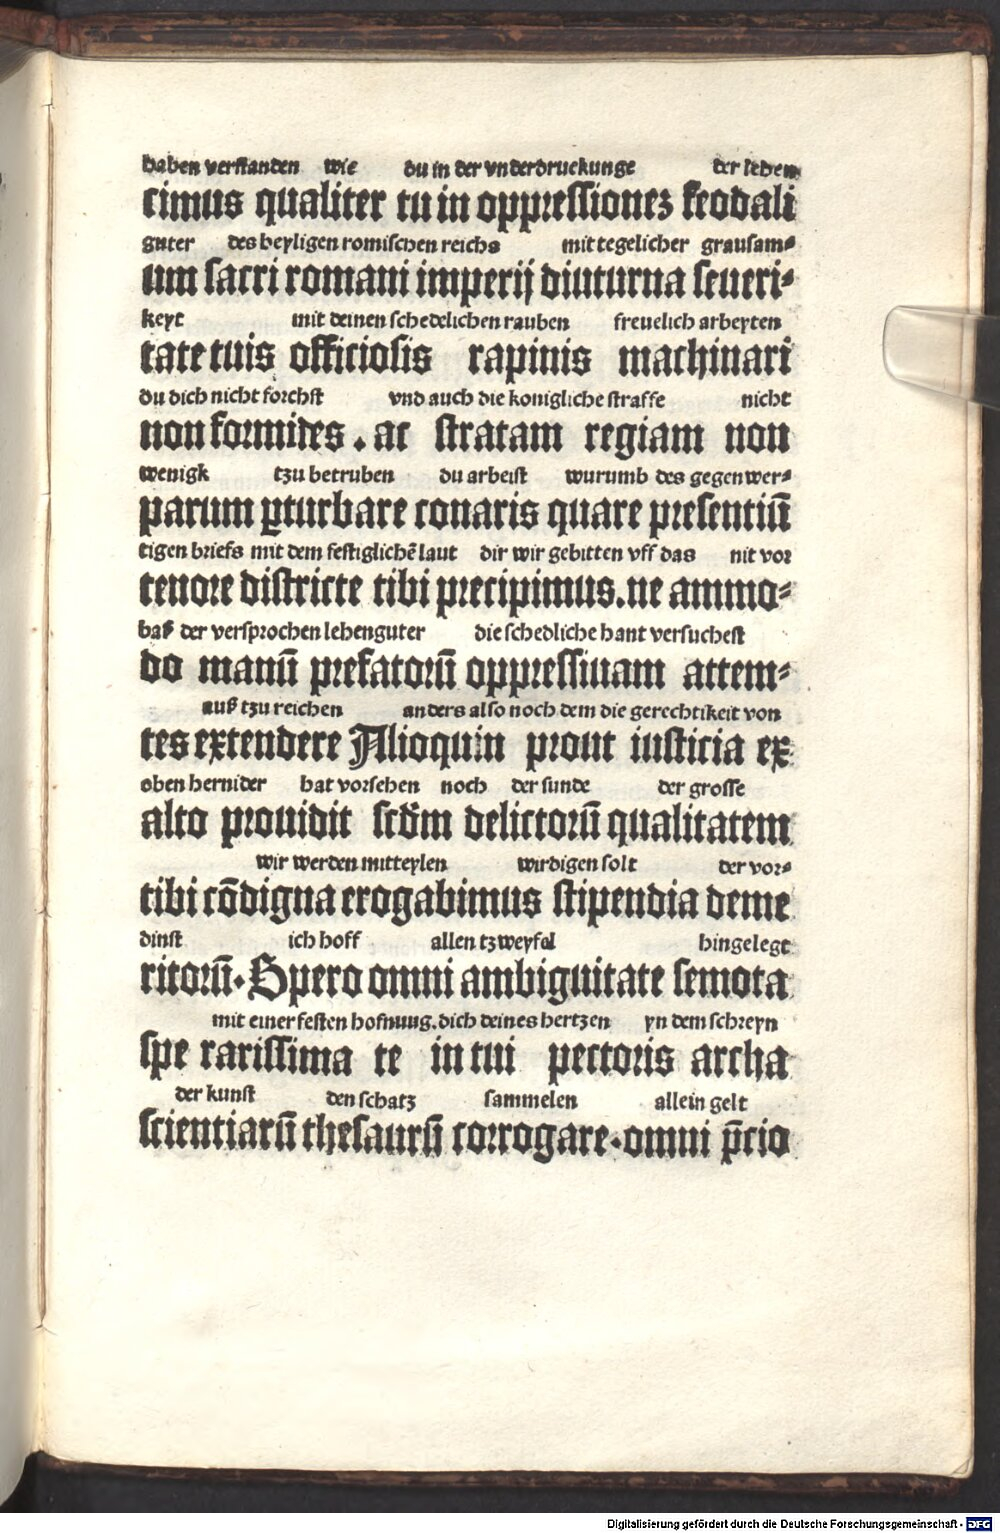 haben verstanden wie du in der vnderdruckunge der lehen
cimus qualiter tu in oppressionez feodali
guter des heyligen romischen reichs mit tegelicher grausam⸗
um sacri romani imperij diuturna seueri⸗
keyt mit deinen schedelichen rauben freuelich arbeyten
tate tuis officiosis rapinis machinari
du dich nicht forchst vnd auch die konigliche straffe nicht
non formides . ac stratam regiam non
wenigk tzu betruben du arbeist wurumb des gegenwer⸗
parum ꝑturbare conaris quare presentiū
tigen briefs mit dem festiglichē laut dir wir gebitten vff das nit vor
tenore districte tibi precipimus.ne ammo⸗
baß der versprochen lehenguter die schedliche hant versuchest
do manū prefatorū oppressiuam attem⸗
auß tzu reichen anders also noch dem die gerechtikeit von
tes extendere Alioquin prout iusticia ex
oben hernider hat vorsehen noch der sunde der grosse
alto prouidit scd̄m delictorū qualitatem
wir werden mitteylen wirdigen solt der vor⸗
tibi cōdigna erogabimus stipendia deme
dinst ich hoff allen tzweyfal hingelegt
ritorū. Spero omni ambiguitate semota
mit einer festen hofnuug.dich deines hertzen yn dem schreyn
spe rarissima te in tui pectoris archa
der kunst den schatz sammelen allein gelt
scientiarū thesaurū corrogare.omni p̄cio
Digitalisierung gefördert durch die Deutsche Forschungsgemeinschaft - DFG